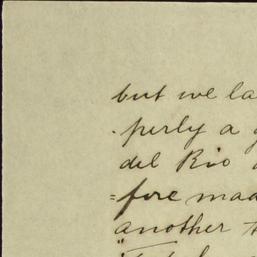 but we la
-perly a g
del Rio
=fore mad
another t